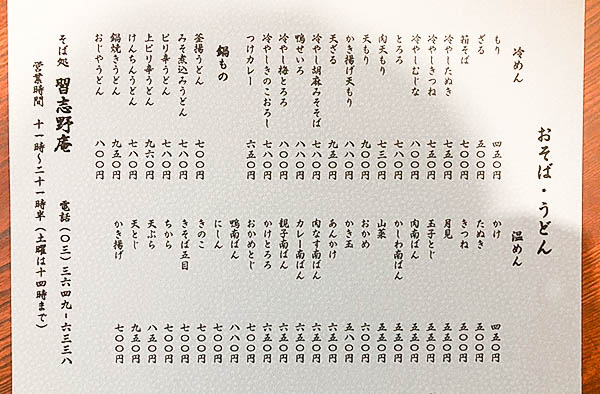 おそば・うどん
冷めん
もり 四五〇円
ざる 五〇〇円
箱そば 七八〇円
冷やしたぬき 七五〇円
冷やしきつね 五五〇円
冷やしむじな 七八〇円
とろろ 八〇〇円
肉天もり 七三〇円
天もり 九〇〇円
かき揚げ天もり 八八〇円
天ざる 九五〇円
冷やし胡麻みそそば 七八〇円
鴨せいろ 八八〇円
冷やし梅とろろ 八八〇円
冷やしきのこおろし 七八〇円
つけカレー 六五〇円
鍋もの
釜揚うどん 七〇〇円
みそ煮込みうどん 七八〇円
ピリ辛うどん 七八〇円
上ピリ辛うどん 九六〇円
けんちんうどん 七八〇円
鍋焼きうどん 九五〇円
おじやうどん 八〇〇円
温めん
かけ 四五〇円
たぬき 五〇〇円
きつね 五〇〇円
月見 五五〇円
玉子とじ 五五〇円
肉南ばん 五五〇円
かしわ南ばん 五五〇円
山菜 五五〇円
おかめ 六〇〇円
かき玉 五八〇円
あんかけ 六五〇円
肉なす南ばん 六五〇円
カレー南ばん 六五〇円
親子南ばん 六五〇円
かけとろろ 六五〇円
おかめとじ 七〇〇円
鴨南ばん 八八〇円
にしん 七〇〇円
きのこ 七〇〇円
きそば五目 七〇〇円
ちから 七〇〇円
天ぷら 八五〇円
天とじ 九五〇円
かき揚げ 七〇〇円
そば処 習志野庵 電話(〇三)三六四九-六三三八
営業時間 十一時〜二十一時半(土曜は十四時まで)